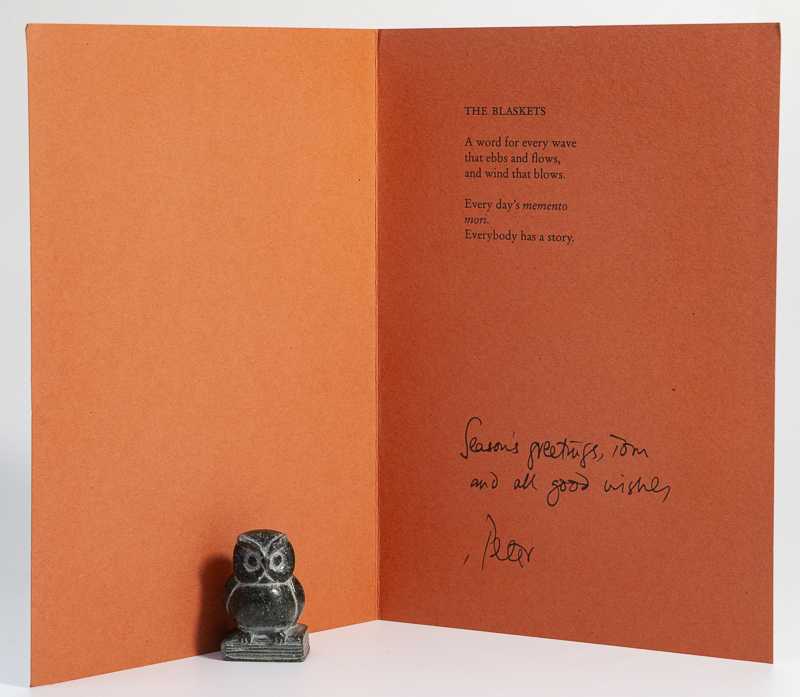 THE BLASKETS
A word for every wave
that ebbs and flows,
and wind that blows.
Every day's memento
mori.
Everybody has a story.
Season's greetings, Tom
and all good wishes,
Peter